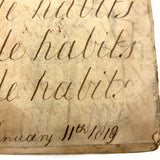 le habits
le habits
le habit
anuary 11th 1819